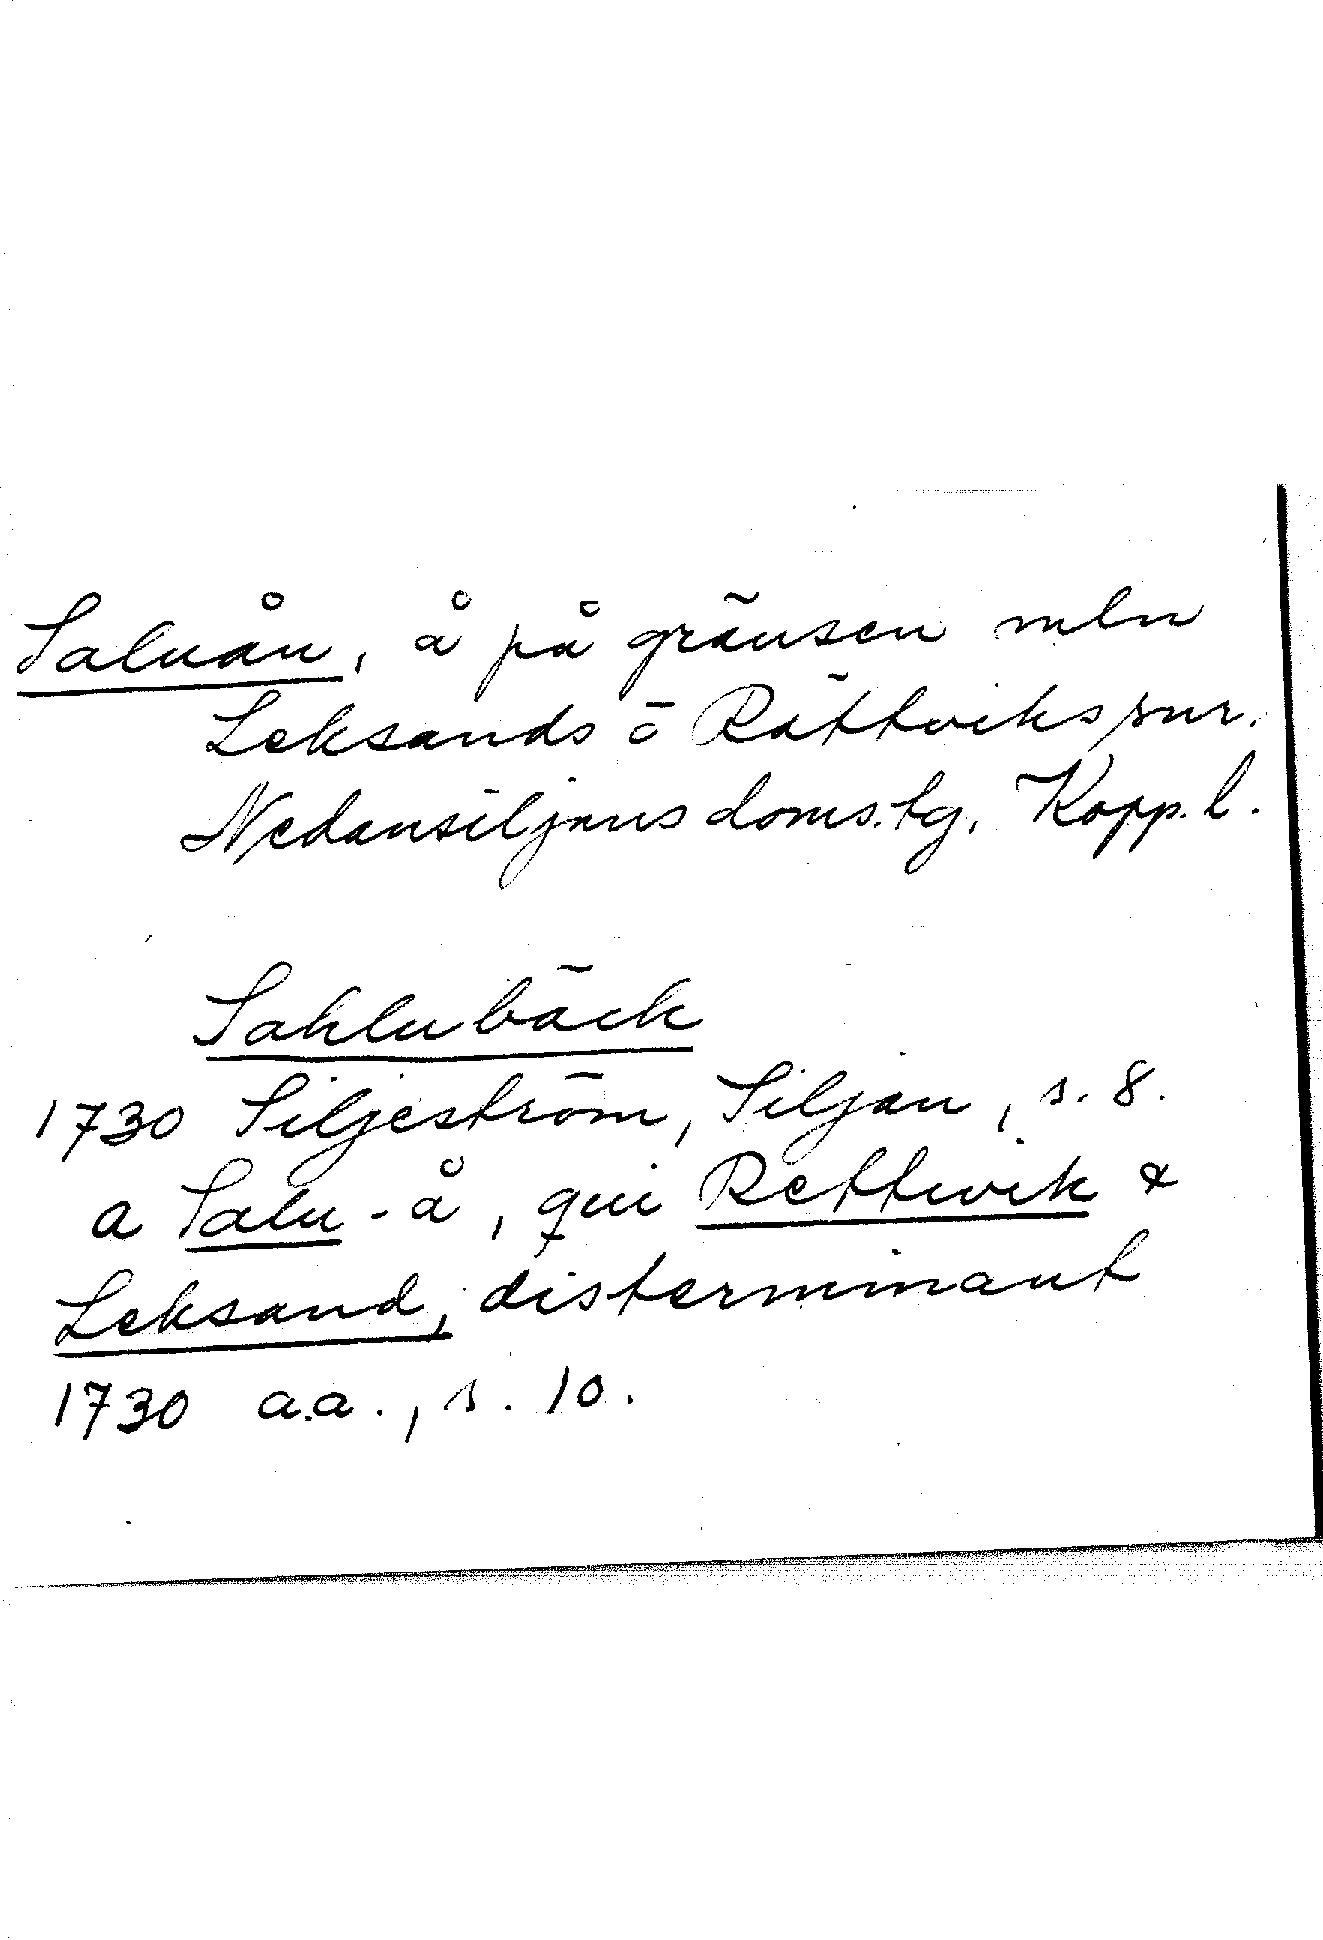 Saluån, å på gränsen mln
Leksands o Rättviks snr.
Nedansiljans doms. tg. Kopp. l.
Sahlubäck
1730 Siljeström, Siljan, s. 8.
a Salu-å, qui Rettwik &
Leksand, disterminant
1730 a.a., s. 10.